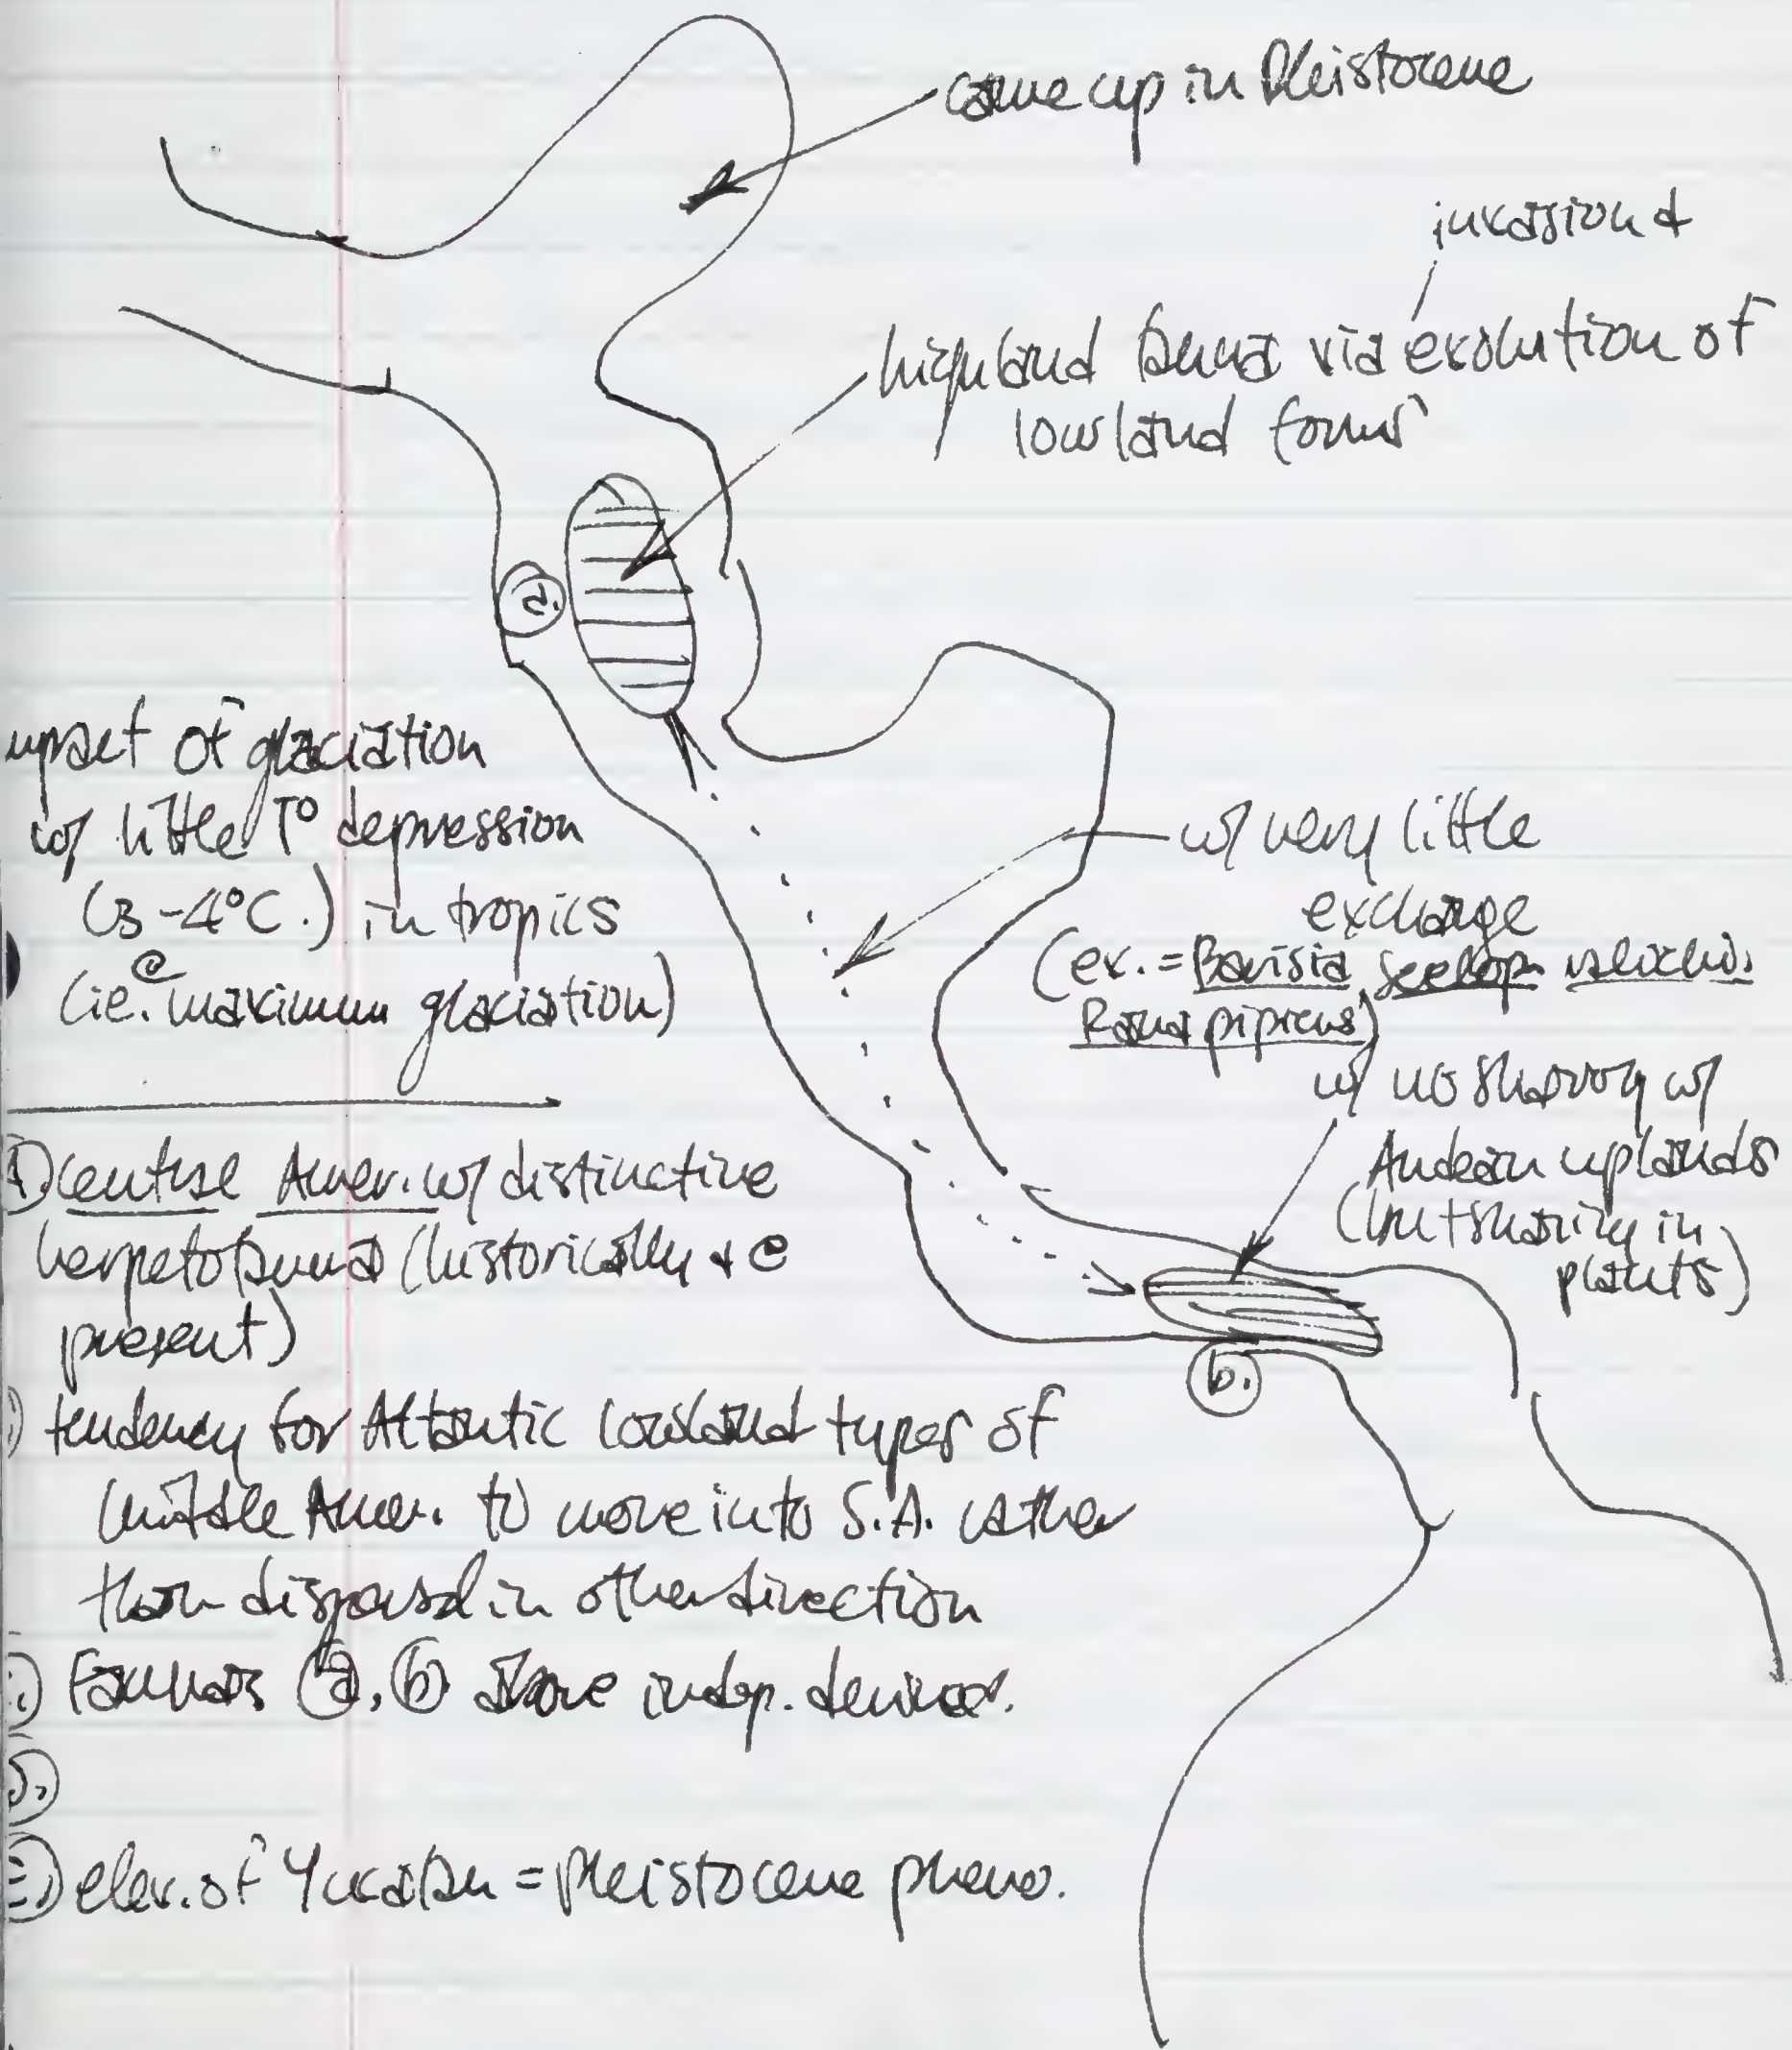 came up in Pleistocene
invasion &
highland fauna via evolution of
lowland forms
a.
impact of glaciation
w/ little T° depression
(3-4°C.) in tropics
(ie. @ maximum glaciation)
w/ very little
exchange
(ex. = Barisia
Rana pipiens)
w/ no sharing w/
Andean uplands
(but sharing in
plants)
b.
Central Amer. w/ distinctive
herpetofauna (historically & @
present)
tendency for Atlantic lowland types of
Middle Amer. to move into S.A. rather
than dispersal in other direction
Faunas a, b above indep. derived.
elev. of Yucatan = pleistocene pheno.